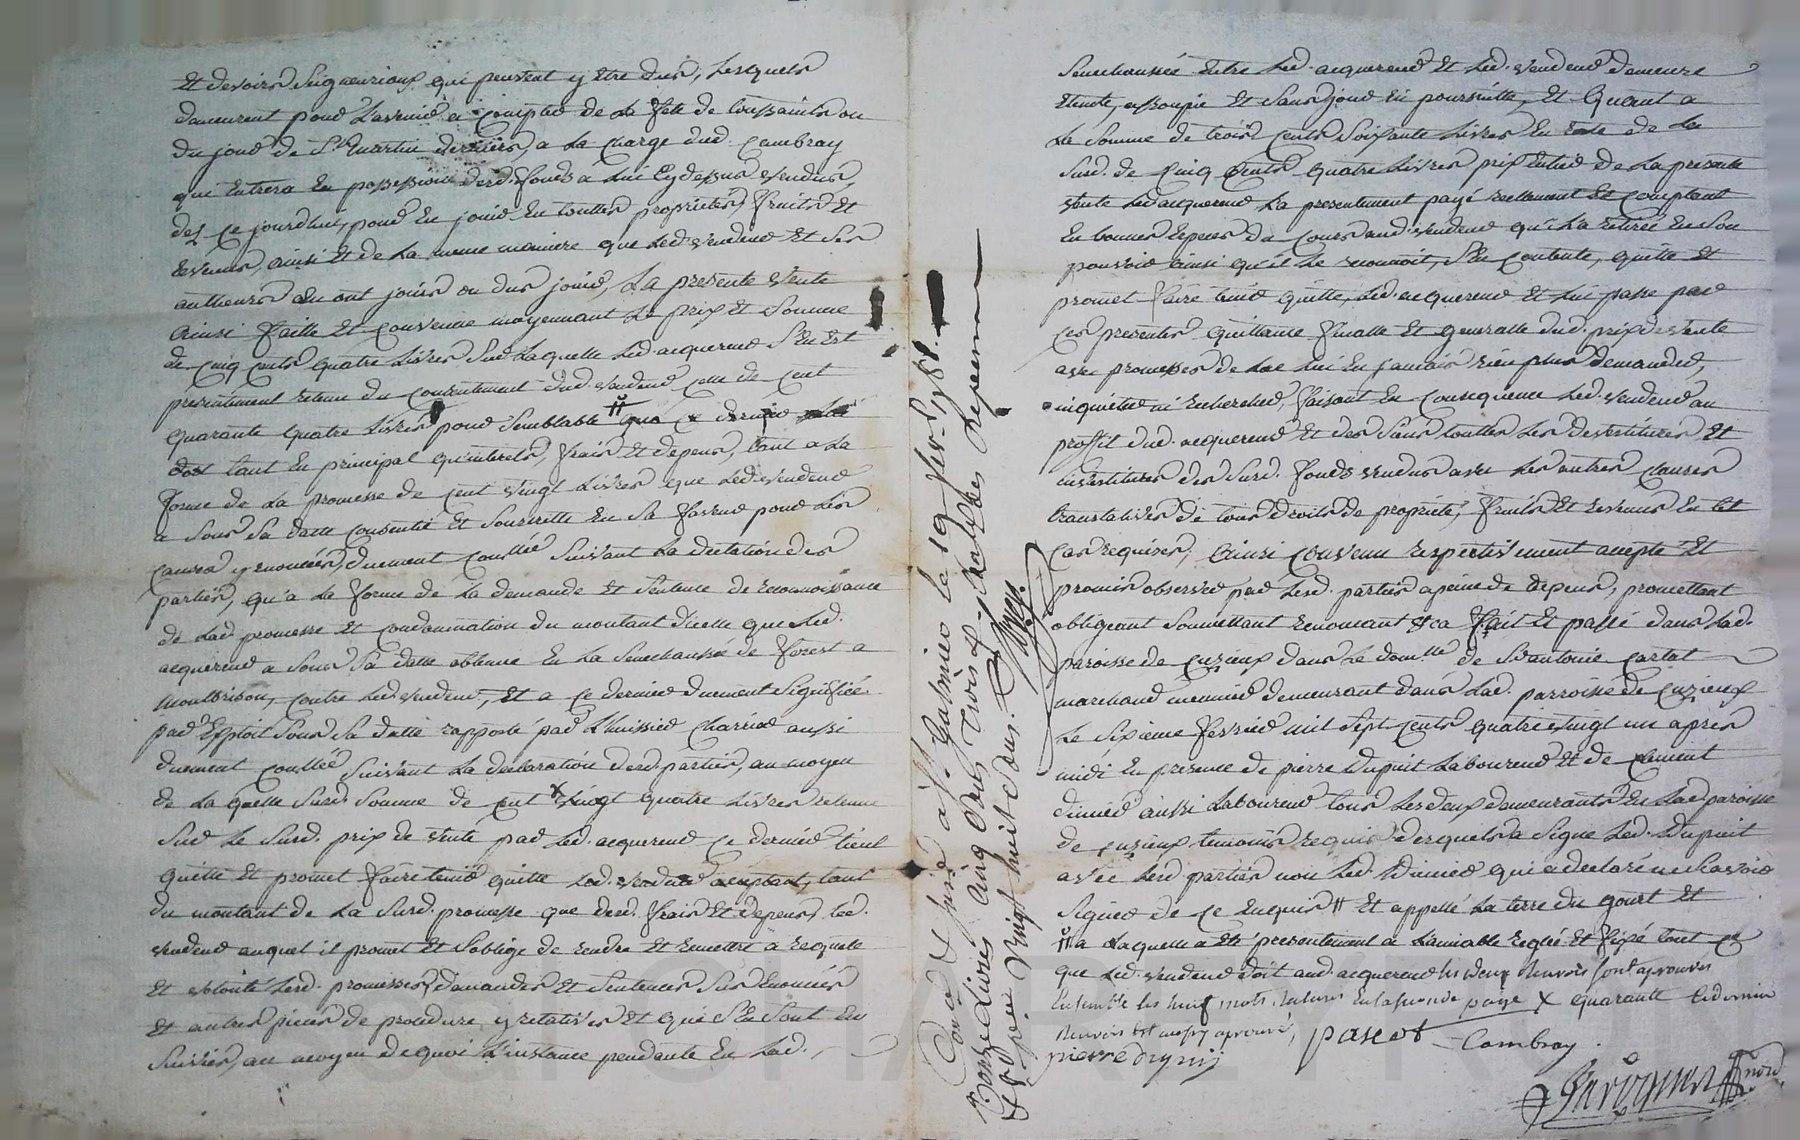 Et devoirs Seigneuriaux qui peuvent y Etre dus, Lesquels
demeurent pour Lavenir a Compter de La fete de toussaints ou
du jour de St Martin derniers, a La charge dud. Cambray
qui Entrera En possession desd. fonds a Lui Cydessus vendus
dez Ce jourdhui, pour En jouir En touttes proprietés, fruits Et
Revenus, ainsi Et de La meme maniere que Led. vendeur Et Ses
autheurs En ont jouis ou dus jouir, La presente vente
ainsi faitte Et Convenue moyennant Le prix Et Somme
de Cinq Cents quatre Livres Sur Laquelle Led. acquereur S'En Est
presentement retenu du Consentement dud. vendeur Celle de Cent
quarante quatre Livres pour Semblable que Ce dernier
doit tant En principal qu'interets, frais Et depens, tant a La
forme de La promesse de Cent vingt Livres que Led. vendeur
a Sous Sa datte Consentie Et Souscritte En Sa faveur pour Les
Causes y Enoncées, duement Conllée Suivant La declaration des
parties, qu'a La forme de La demande Et Sentence de reconnoissance
de Lad. promesse Et Condamnation du montant d'icelle que Led.
acquereur a Sous Sa datte obtenue En La Senechaussée de forest a
Montbrison, Contre Led. vendeur, Et a Ce dernier duement Signifiée
par Exploit Sous Sa datte rapporté par L'huissier Charrier aussi
duement Conllée Suivant La declaration desd. parties, au moyen
de La quelle Susd. Somme de Cent X vingt quatre Livres retenue
Sur Le Susd. prix de vente par Led. acquereur Ce dernier tient
quitte Et promet faire tenir quitte Led. vendeur acceptant, tant
du montant de La Susd. promesse que desd. frais Et depens, Led.
vendeur auquel il promet Et S'oblige de rendre Et remettre a requette
Et volonté Lesd. promesses, demandes Et Sentences Sus Enoncées
Et autres pieces de procedure y relatives Et qui S'En Sont En
Suivies, au moyen de quoi L'instance pendante En Lad.
Controllé a St Galmier le 19 fevr. 1781.
Cinq Cents trois
vingt huit sous.
Senechaussée Entre Led. acquereur Et Led. vendeur demeure
Eteinte, assoupie Et Sans jour En poursuitte, Et Quant a
La Somme de trois Cents Soixante Livres En reste de La
Susd. de Cinq Cents quatre Livres prix Entier de La presente
vente Led. acquereur La presentement payé reellement Et Comptant
En bonnes Especes du Cours aud. vendeur qui La retirée En Son
pouvoir ainsi qu'il Le reconnoit, S'En Contente, quitte Et
promet faire tenir quitte, Led. acquereur Et Lui passe par
Ces presentes quittance finalle Et generalle dud. prix de vente
avec promesses de Lui En jamais rien plus demander,
inquieter ni rechercher, faisant En Consequence Led. vendeur au
proffit dud. acquereur Et des Siens touttes Les devestitures Et
investitures des Susd. fonds vendus avec Les autres Clauses
translatives de tous droits de proprieté, fruits Et revenus En tel
Cas requises, ainsi Convenu respectivement accepté Et
promis observer par Lesd. parties a peine de depens, promettant
obligeant Soumettant renonçant &ca fait Et passé dans Lad.
paroisse de Cuzieux dans Le domlle de Sr antoine Cartal
marchand meunier demeurant dans Lad. parroisse de Cuzieux
Le Sixieme fevrier mil Sept Cents quatre vingt un apres
midi En presence de pierre Dupuit Laboureur Et de Clement
Dimier aussi Laboureur tous Les deux demeurants En Lad. paroisse
de Cuzieux temoins requis desquels a Signé Led. Dupuit
avec Lesd. parties non Led. Dimier qui a declaré ne Scavoir
Signer de Ce Enquis # Et appellé La terre du gourt Et
# a Laquelle a Eté presentement a L'amiable reglée Et fixé tout Ce
que Led. vendeur doit aud. acquereur les deux Renvois sont aprouvés
Ensemble les huit mots Raturés En la seconde page X quarante Ce dernier
Renvoi Est aussy aprouvé, pascot Cambray.
pierre dupuij